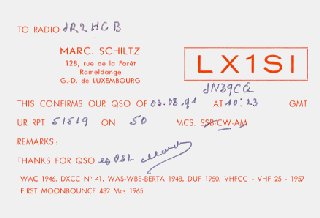 TO RADIO JR2HGB
MARC. SCHILTZ
128, rue de la Forêt
Rameldange
G.-D. de LUXEMBOURG
LX1SI
JN39CQ
THIS CONFIRMS OUR QSO OF 03.08.91 AT 10:23 GMT
UR RPT 51519 ON 50 MCS. SSB-CW-AM
REMARKS:
THANKS FOR QSO
WAC 1946, DXCC No 41, WAS-WBE-BERTA 1948, DUF 1950, VHFCC - VHF 25 - 1957
FIRST MOONBOUNCE 432 Mcs 1965